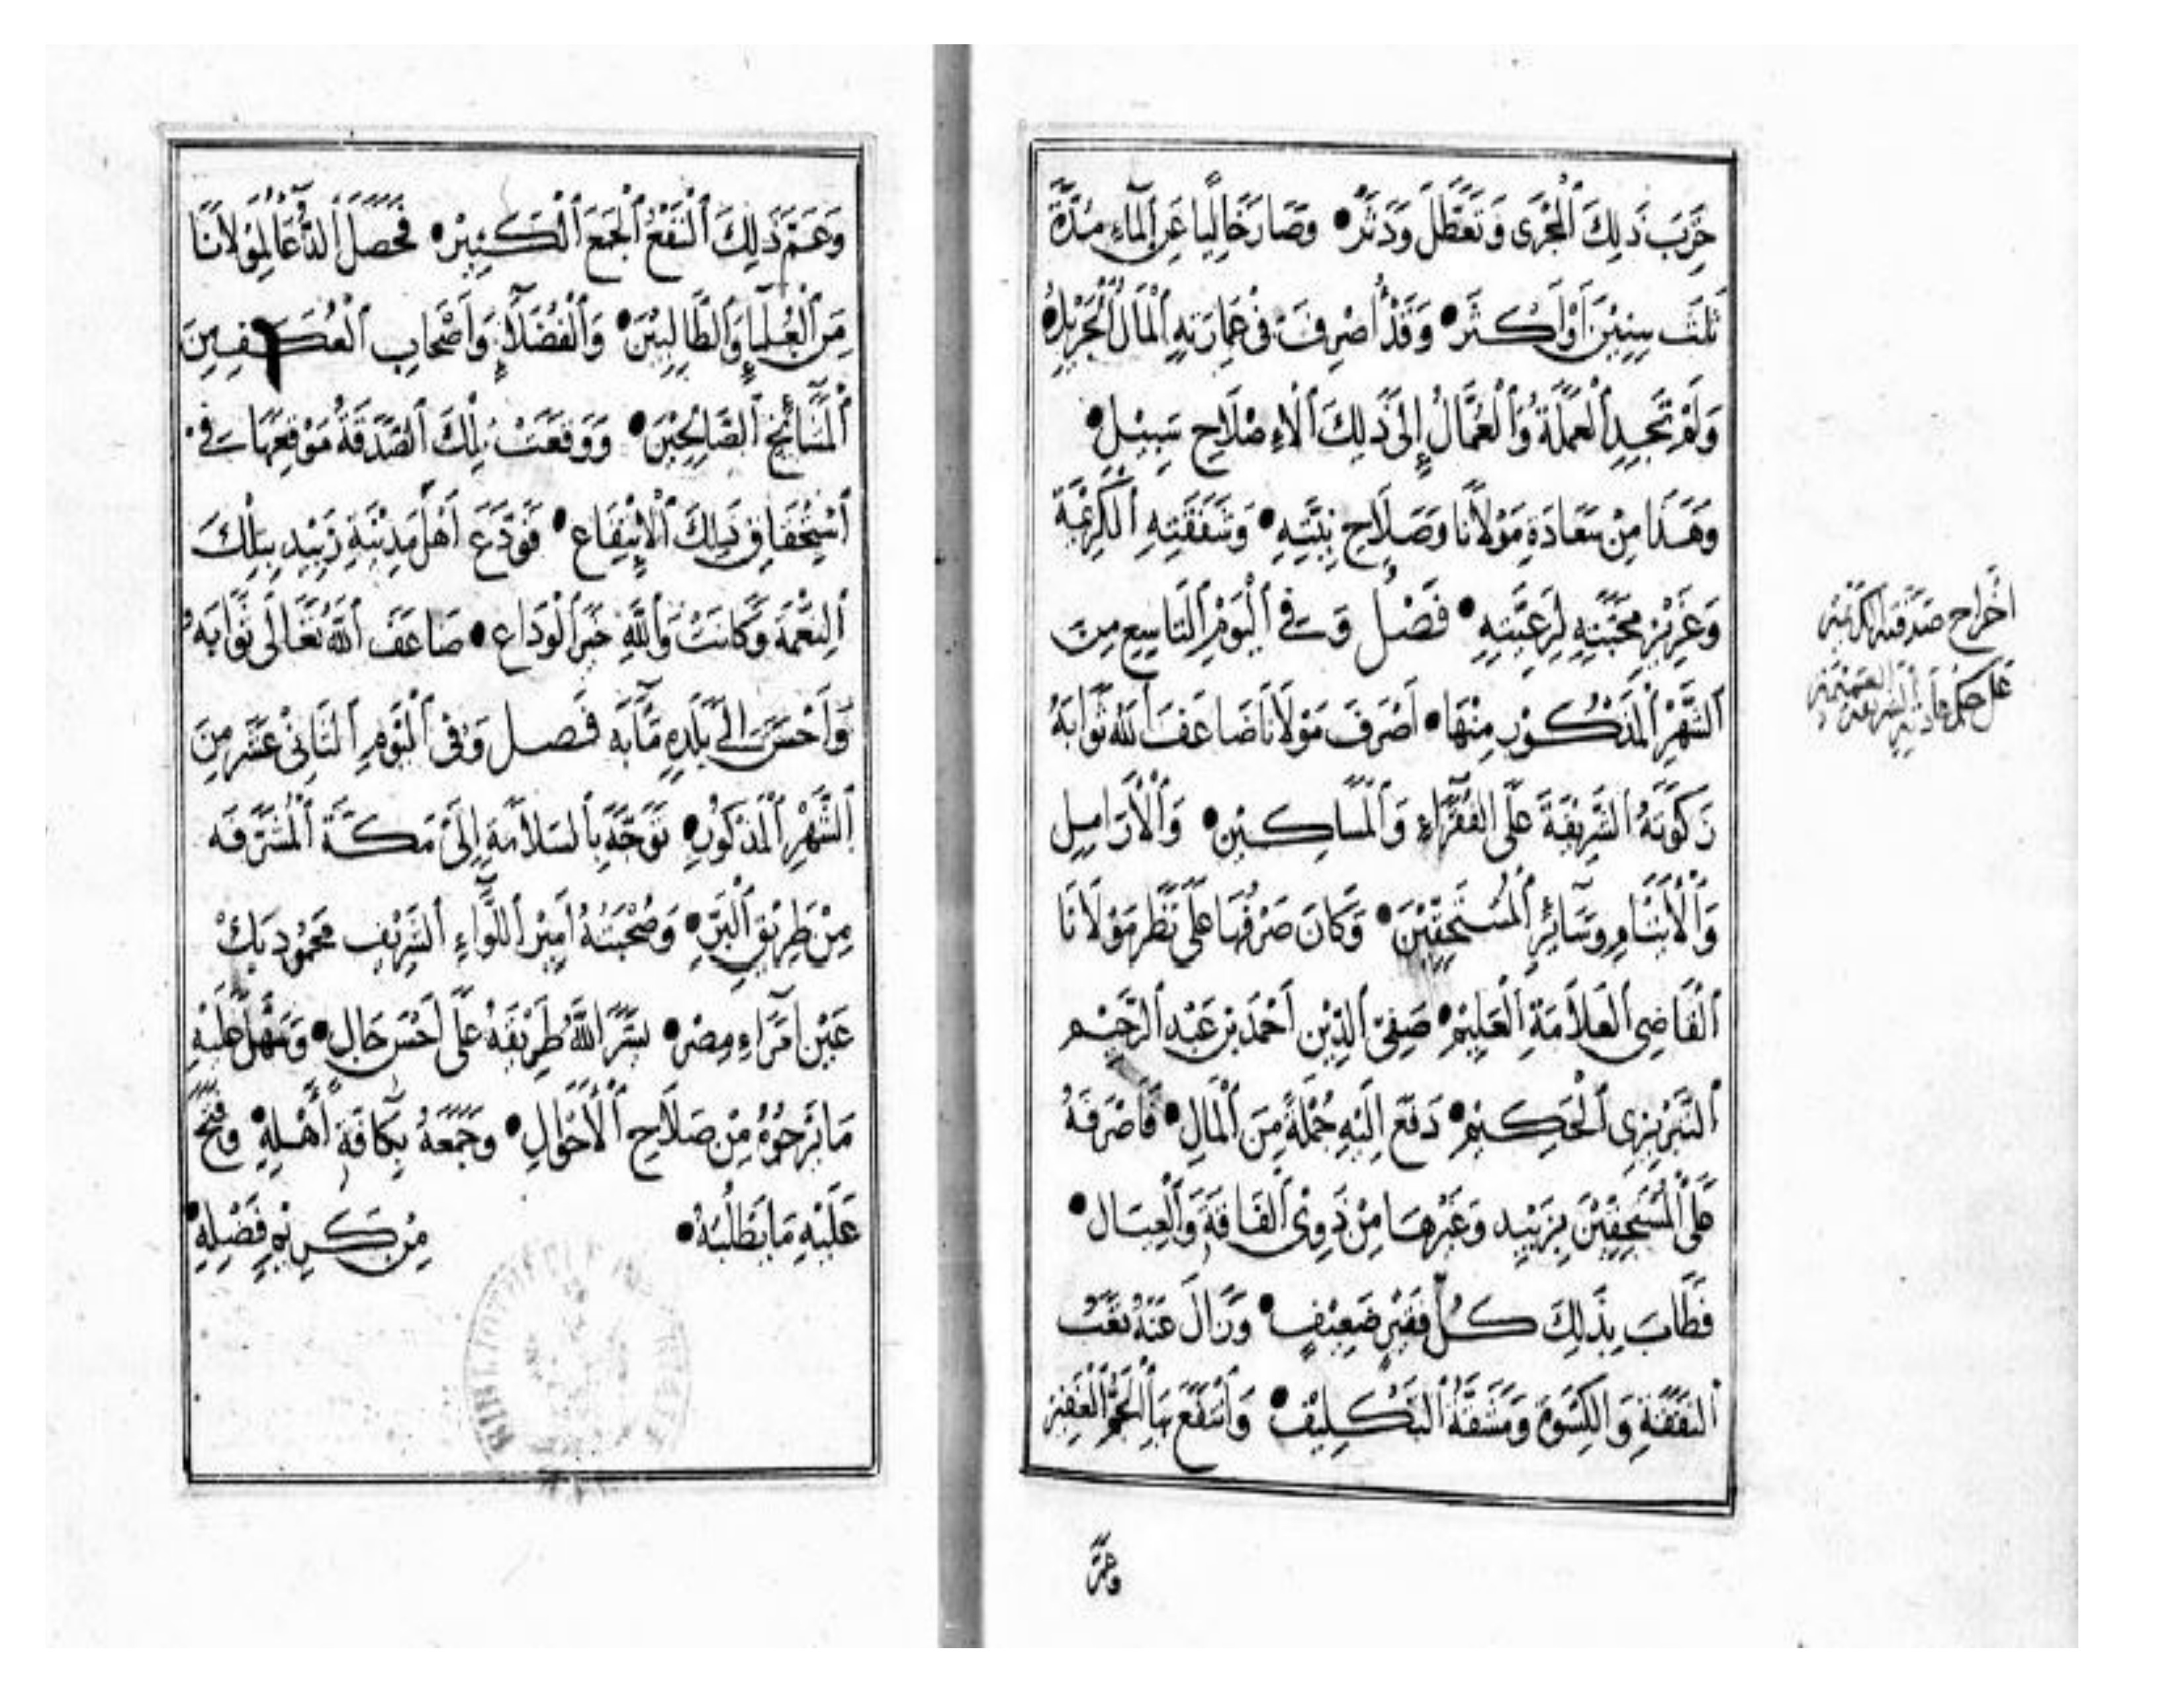 خَرِبَ ذَلِكَ الْمَجْرَى وَتَعَطَّلَ وَدَثَرْ • وَصَارَ خَالِيًا عَنِ الْمَاءِ مُدَّةَ
ثَلَثَ سِنِيْنَ أَوْ أَكْثَرْ • وَقَدْ أُصْرِفَ فِي عِمَارَتِهِ الْمَالُ الْجَزِيْلُ •
وَلَمْ تَجِدِ الْعَمَلَةُ وَالْعُمَّالُ إِلَى ذَلِكَ الْاءِصْلَاحِ سَبِيْل •
وَهَذَا مِنْ سَعَادَةِ مَوْلَانَا وَصَلَاحِ نِيَّتِهِ • وَشَفَقَتِهِ الْكَرِيْمَةِ
وَعَزِيْزِ مَحَبَّتِهِ لِرَعِيَّتِهِ • فَصْل وَفِي الْيَوْمِ التَّاسِعِ مِنَ
الشَّهْرِ الْمَذْكُوْرِ مِنْهَا • اَصْرَفَ مَوْلَانَا ضَاعَفَ اللهُ ثَوَابَهُ
زَكَوتَهُ الشَّرِيْفَةَ عَلَى الْفُقَرَاءِ وَالْمَسَاكِيْنِ • وَالْأَرَامِلِ
وَالْأَيْتَامِ وَسَائِرِ الْمُسْتَحِقِّيْنَ • وَكَانَ صَرْفُهَا عَلَى نَظَرِ مَوْلَانَا
الْقَاضِي الْعَلاَّمَةِ الْعَلِيْمِ • صَفِيِّ الدِّيْنِ اَحْمَدَ بْنِ عَبْدِ الرَّحِيْمِ
التَّبْرِيْزِي الْحَكِيْمِ • دَفَعَ اِلَيْهِ جُمْلَةً مِنَ الْمَالِ • فَاَصْرَفَهُ
عَلَى الْمُسْتَحِقِّيْنَ بِزَبِيْدِ وَغَيْرِهَا مِنْ ذَوِي الْفَاقَةِ وَالْعِيَالِ •
فَطَابَ بِذَلِكَ كُلُّ فَقِيْرٍ ضَعِيْفٍ • وَزَالَ عَنْهُ تَعَبُ
النَّفَقَةِ وَالْكِسْوَةِ وَمَشَقَّةُ التَّكْلِيْفِ • وَانْتَفَعَ بِهَا الْجَمُّ الْغَفِيْرُ
وَعَمَّ
اخراج صدقته الكريمة
على حكم عادته الشريفة العميمة
وَعَمَّ ذَلِكَ النَّفْعُ الْجَمْعَ الْكَثِيْرْ • فَحَصَلَ الدُّعَآءُ لِمَوْلَانَا
مِنَ الْعُلَمَاءِ وَالطَّالِبِيْنَ • وَالْفُضَلَآءِ وَاَصْحَابِ الْعُكَّفِينَ
الْمَشَائِخِ الصَّالِحِيْنَ • وَوَقَعَتْ تِلْكَ الصَّدَقَةُ مَوْقِعَهَا فِي •
اسْتِحْقَاقِ ذَلِكَ الْاِنْتِفَاعِ • فَوَدَّعَ اَهْلَ مَدِيْنَةِ زَبِيْدِ بِتِلْكَ
النِّعْمَةِ وَكَانَتْ وَاللَّهِ خَيْرَ الْوَدَاعِ • ضَاعَفَ اللهُ تَعَالَى ثَوَابَهُ •
وَاَحْسَنَ اِلَى بَلَدِهِ مَآبَهُ فَصل وَفِي الْيَوْمِ الثَّانِيْ عَشَرَ مِنَ
الشَّهْرِ الْمَذْكُوْرِ • تَوَجَّهَ بِالسَّلَامَةِ اِلَى مَكَّةَ الْمُشَرَّفَه
مِنْ طَرِيْقِ الْبَرِّ • وَصُحْبَتُهُ اَمِيْرُ اللِّوَآءِ الشَّرِيْفِ مَحْمُوْد بَكْ
عَيْنِ اُمَرَآءِ مِصْرَ • يَسَّرَ اللَّهُ طَرِيْقَهُ عَلَى اَحْسَنِ حَالٍ • وَسَهَّلَ عَلَيْهِ
مَا يَرْجُوْهُ مِنْ صَلَاحِ الْأَحْوَالِ • وَجَمَعَهُ بِكَافَّةِ اَهْلِهِ • وَفَتَحَ
عَلَيْهِ مَا يَطْلُبُهُ • مِنْ كَرِيْمِ فَضْلِهِ •